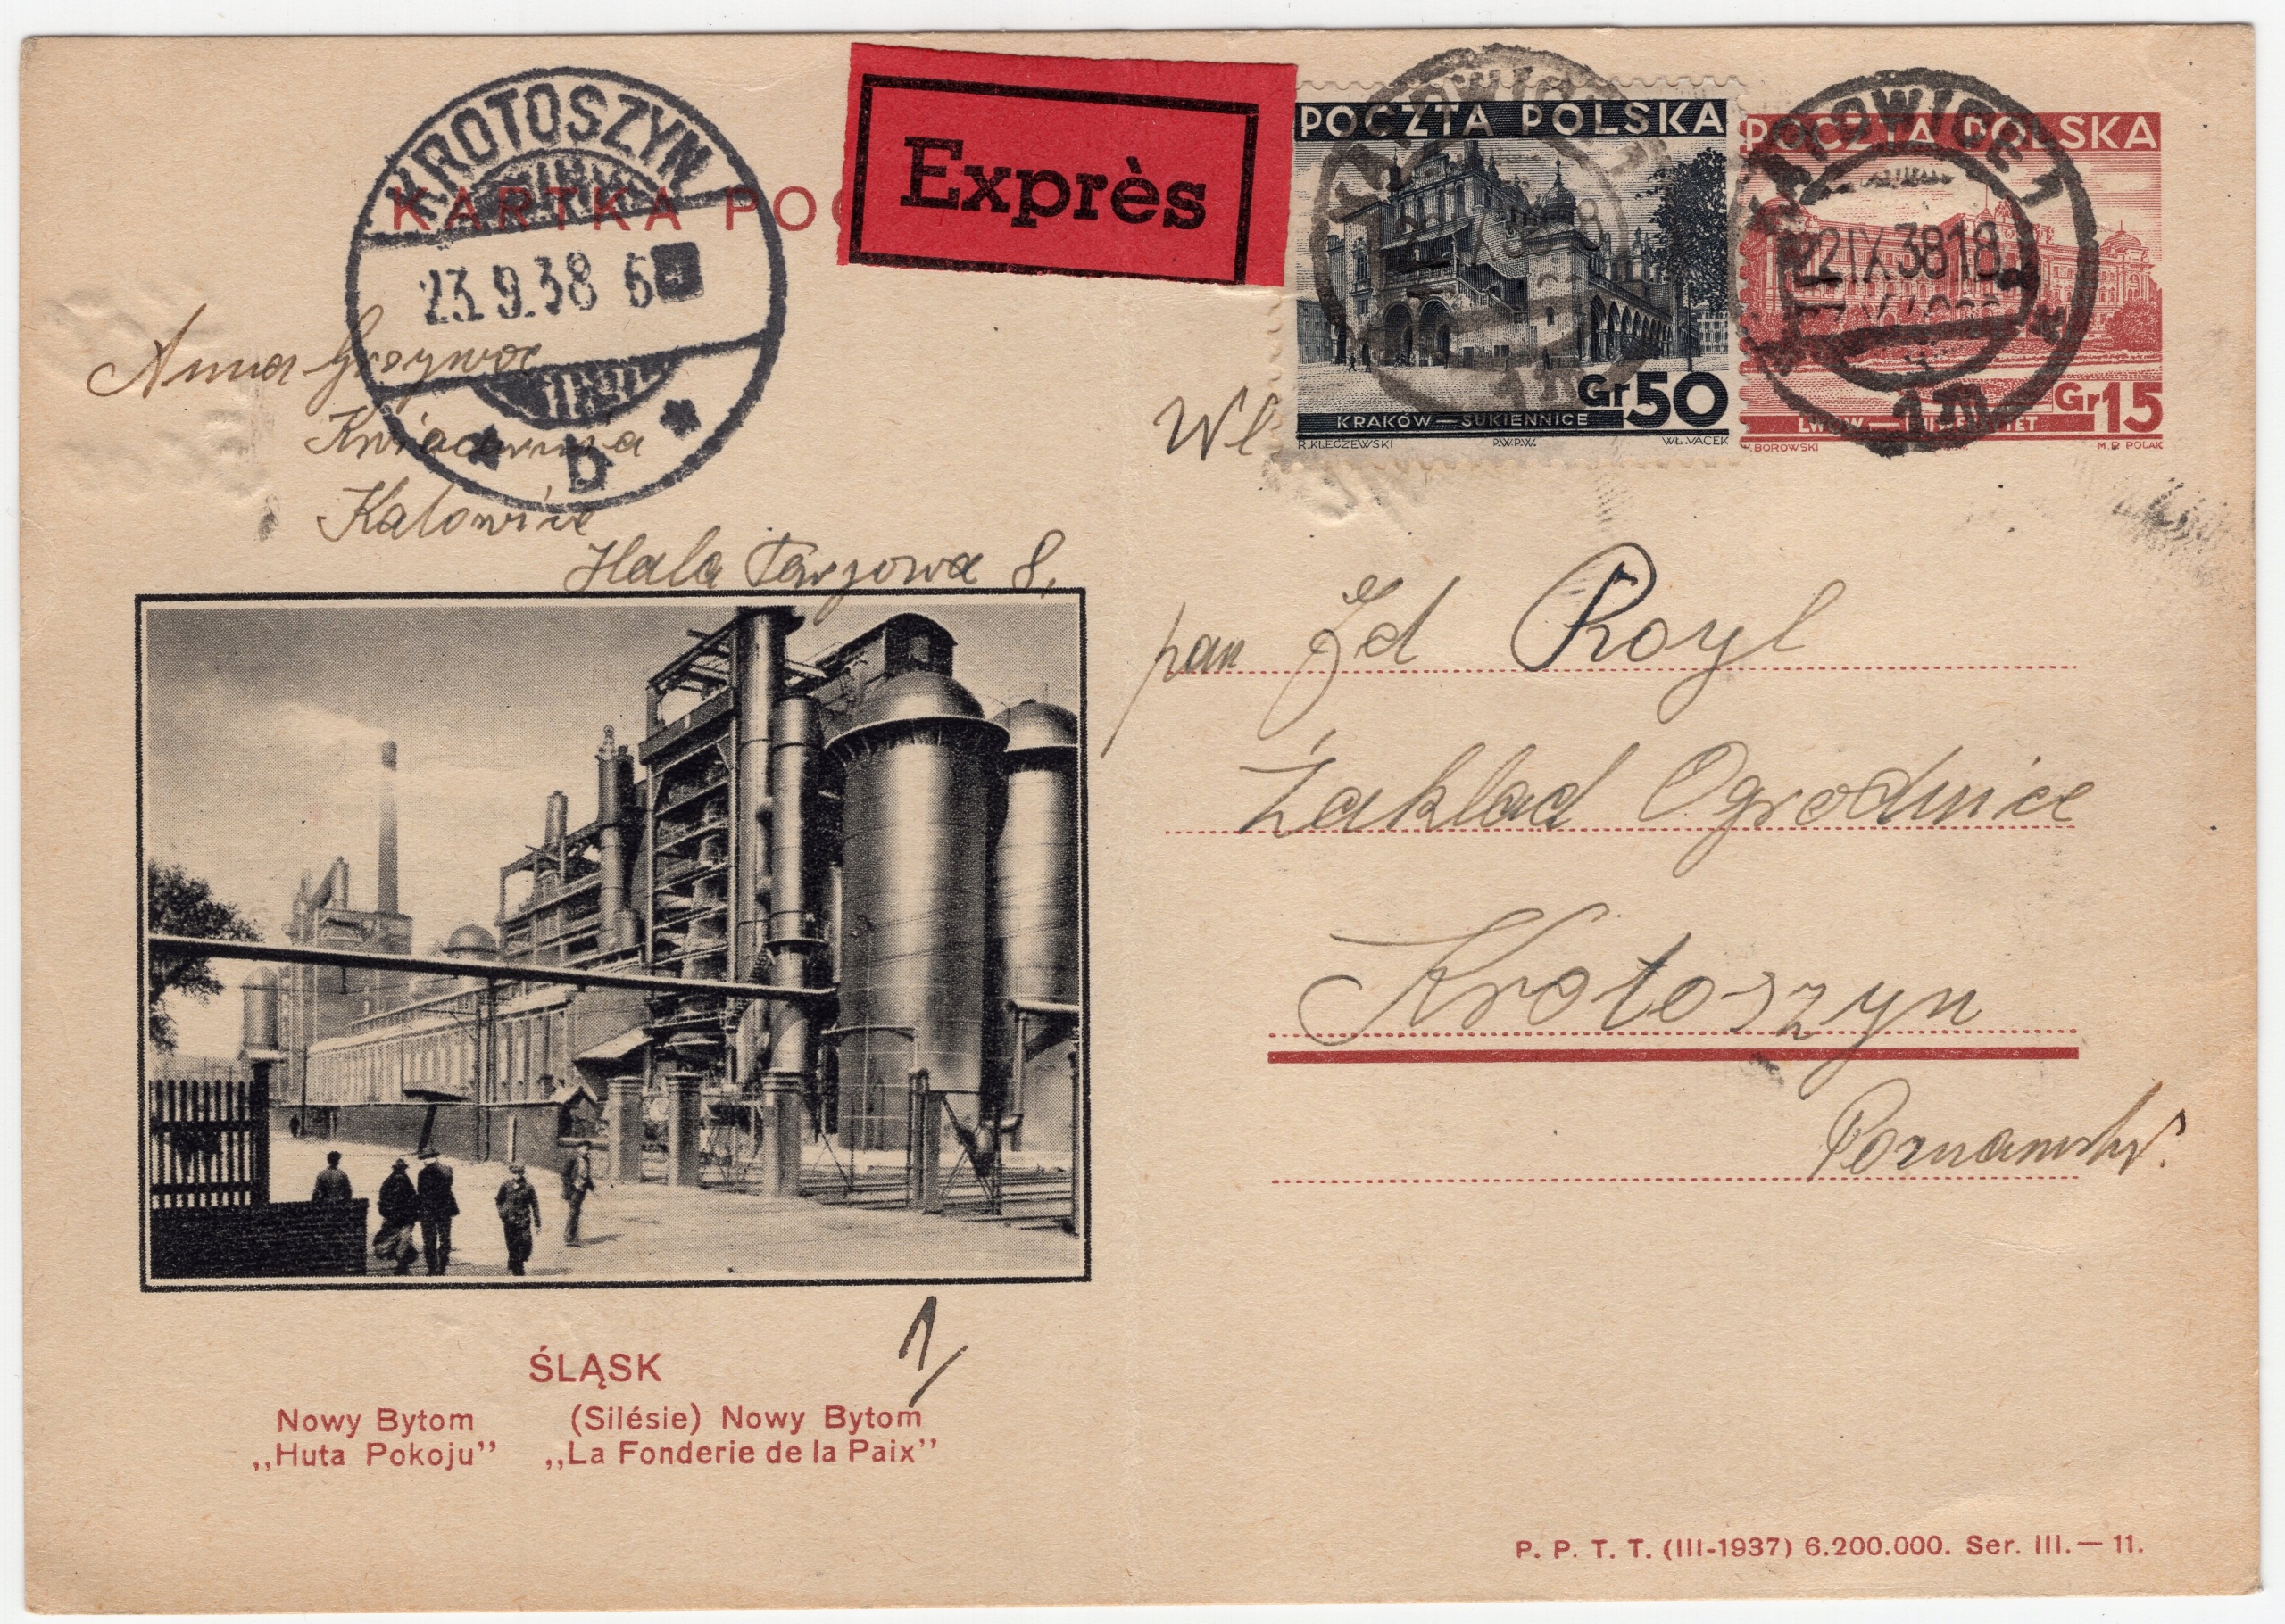 KROTOSZYN
23.9.38 6
b
KARTKA POC
Exprès
POCZTA POLSKA
Gr 50
KRAKÓW — SUKIENNICE
R.KLECZEWSKI P.W.P.W. WŁ.VACEK
POCZTA POLSKA
Gr 15
LWÓW — UNIWERSYTET
W.BOROWSKI M.R. POLAK
KATOWICE 1
22 IX 38 18
Anna
Katowice
Hala Targowa 8.
Wł
pan Jd Royl
Zakład Ogrodnice
Krotoszyn
Poznański.
1/
ŚLĄSK
Nowy Bytom (Silésie) Nowy Bytom
„Huta Pokoju” „La Fonderie de la Paix”
P. P. T. T. (III-1937) 6.200.000. Ser. III. — 11.